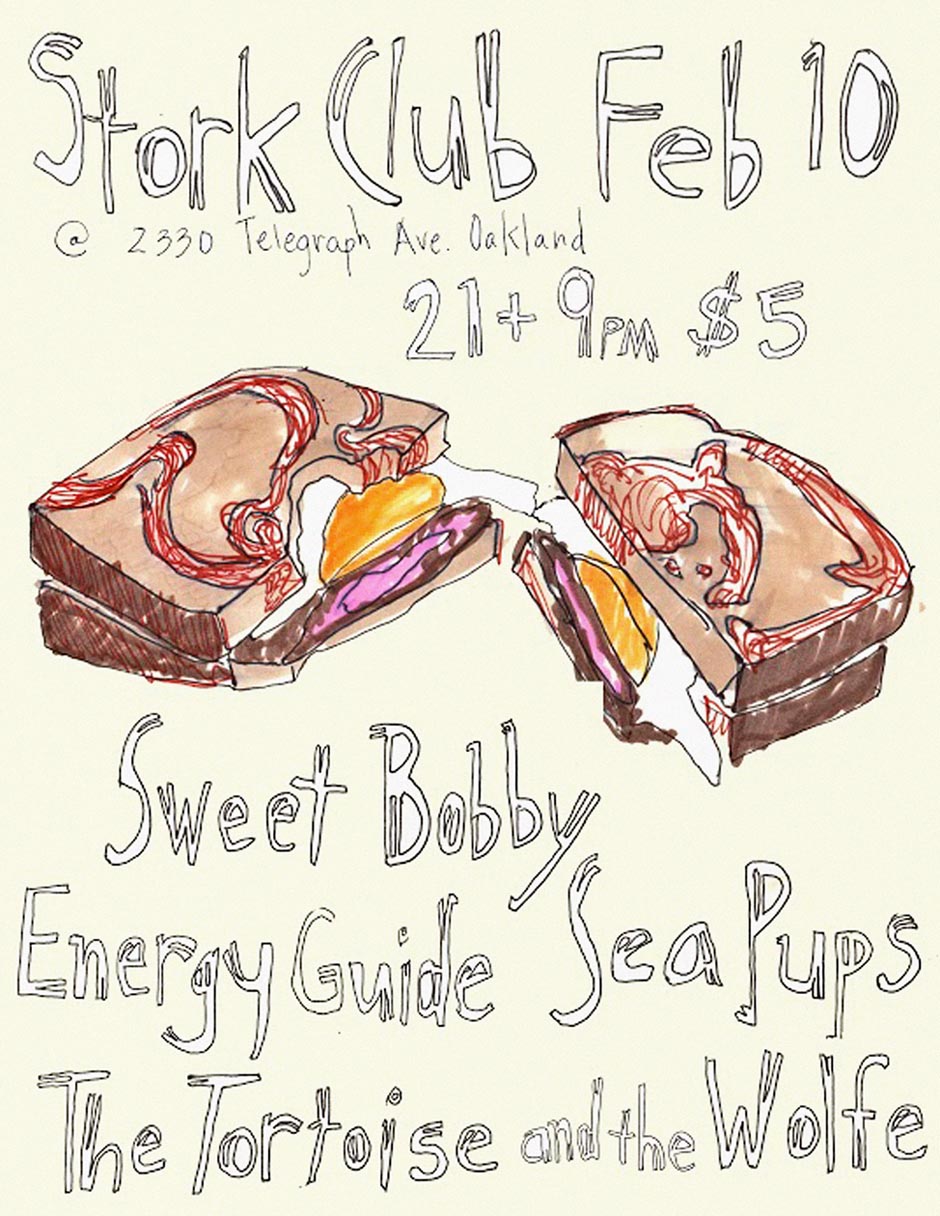 Stork Club Feb 10
@ 2330 Telegraph Ave. Oakland
21+ 9PM $5
Sweet Bobby
Energy Guide Sea Pups
The Tortoise and the Wolfe